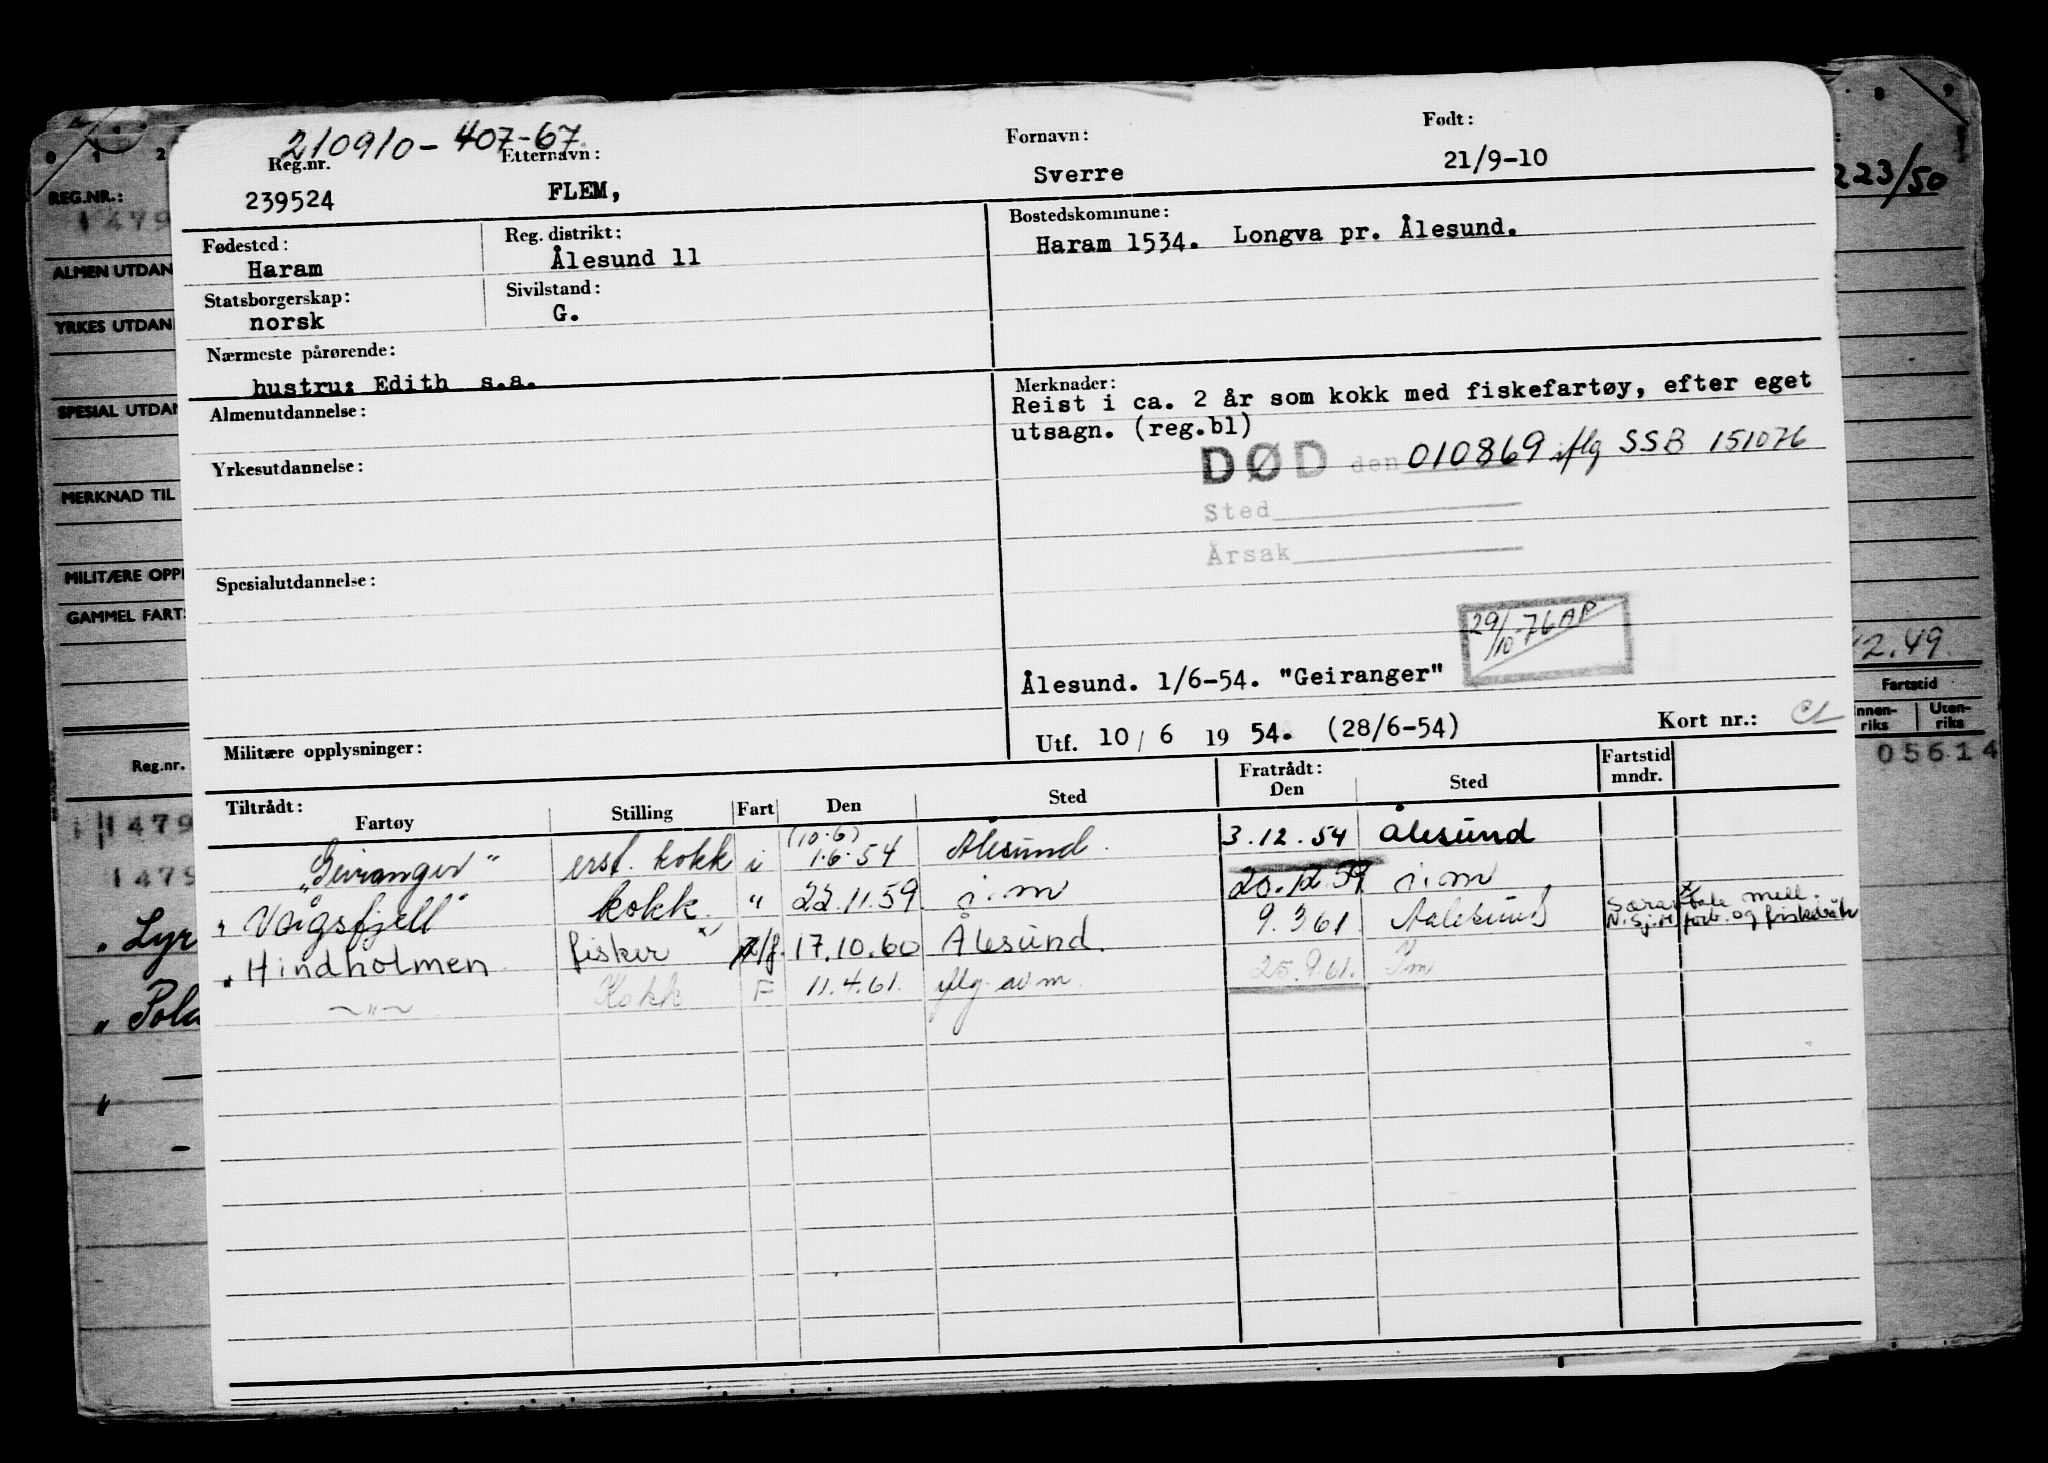 210910-407-67
Reg.nr. Etternavn: Fornavn: Født:
239524 FLEM, Sverre 21/9-10
Fødested: Reg. distrikt: Bostedskommune:
Haram Ålesund 11 Haram 1534. Longva pr. Ålesund.
Statsborgerskap: Sivilstand:
norsk G.
Nærmeste pårørende:
hustru: Edith s.a.
Merknader:
Reist i ca. 2 år som kokk med fiskefartøy, efter eget
utsagn. (reg.bl)
DØD den 010869 iflg SSB 151076
Sted
Årsak
Almenutdannelse:
Yrkesutdannelse:
Spesialutdannelse:
29/10-76 AP
Ålesund. 1/6-54. "Geiranger"
Utf. 10/ 6 19 54. (28/6-54) Kort nr.:
Militære opplysninger:
Tiltrådt: Fratrådt: Fartstid
Fartøy Stilling Fart Den Sted Den Sted mndr.
(10.6)
"Geiranger" erst. kokk i 1.6.54 Ålesund. 3.12.54 Ålesund
" Vågsfjell" kokk. " 22.11.59. i.m 20.12.59 i.m
" Hindholmen fisker /f. 17.10.60 Ålesund. 9.3.61 Aalesund
—"— Kokk F 11.4.61. iflg. av m. 25.9.61. Im
REG.NR.:
1479
ALMEN UTDAN
YRKES UTDAN
SPESIAL UTDAN
MERKNAD TIL
MILITÆRE OPPL
GAMMEL FARTS
Reg.nr.
1479
1479
" Lyr
" Pola
0 1 2
8 9
223/50
2.49.
Fartstid
Innen-riks Uten-riks
05614